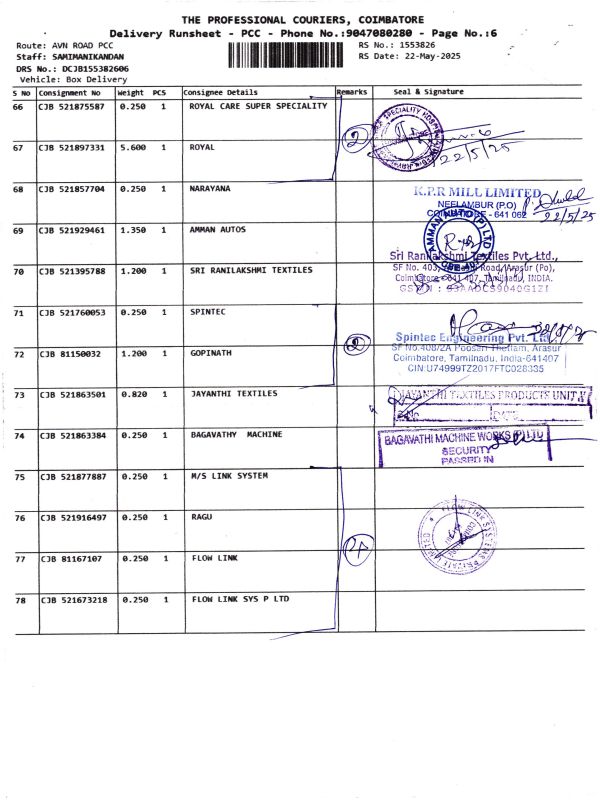 THE PROFESSIONAL COURIERS, COIMBATORE
Delivery Runsheet - PCC - Phone No.:9047080280 - Page No.:6
Route: AVN ROAD PCC
Staff: SAMIMANIKANDAN
DRS No.: DCJB155382606
Vehicle: Box Delivery
RS No.: 1553826
RS Date: 22-May-2025
S No Consignment No Weight PCS Consignee Details Remarks Seal & Signature
66 CJB 521875587 0.250 1 ROYAL CARE SUPER SPECIALITY
2
22/5/25
67 CJB 521897331 5.600 1 ROYAL
68 CJB 521857704 0.250 1 NARAYANA
K.P.R MILL LIMITED
NEELAMBUR (P.O)
COIMBATORE - 641 062
22/5/25
69 CJB 521929461 1.350 1 AMMAN AUTOS
AMMAN AUTO (P) LTD
70 CJB 521395788 1.200 1 SRI RANILAKSHMI TEXTILES
Sri Ranilakshmi Textiles Pvt. Ltd.,
SF No. 403, Road, Arasur (Po),
Coimbatore - 641 407, Tamilnadu, INDIA.
71 CJB 521760053 0.250 1 SPINTEC
2
Spintec Engineering Pvt. Ltd
SF No.408/2A Poosari Thottam, Arasur
Coimbatore, Tamilnadu, India-641407
CIN:U74999TZ2017FTC028335
72 CJB 81150032 1.200 1 GOPINATH
73 CJB 521863501 0.820 1 JAYANTHI TEXTILES
JAYANTHI TEXTILES PRODUCTS UNIT V
DATE
74 CJB 521863384 0.250 1 BAGAVATHY MACHINE
BAGAVATHI MACHINE WORKS (P) LTD
SECURITY
PASSED IN
75 CJB 521877887 0.250 1 M/S LINK SYSTEM
76 CJB 521916497 0.250 1 RAGU
FLOW LINK SYSTEMS PRIVATE LIMITED
77 CJB 81167107 0.250 1 FLOW LINK
78 CJB 521673218 0.250 1 FLOW LINK SYS P LTD